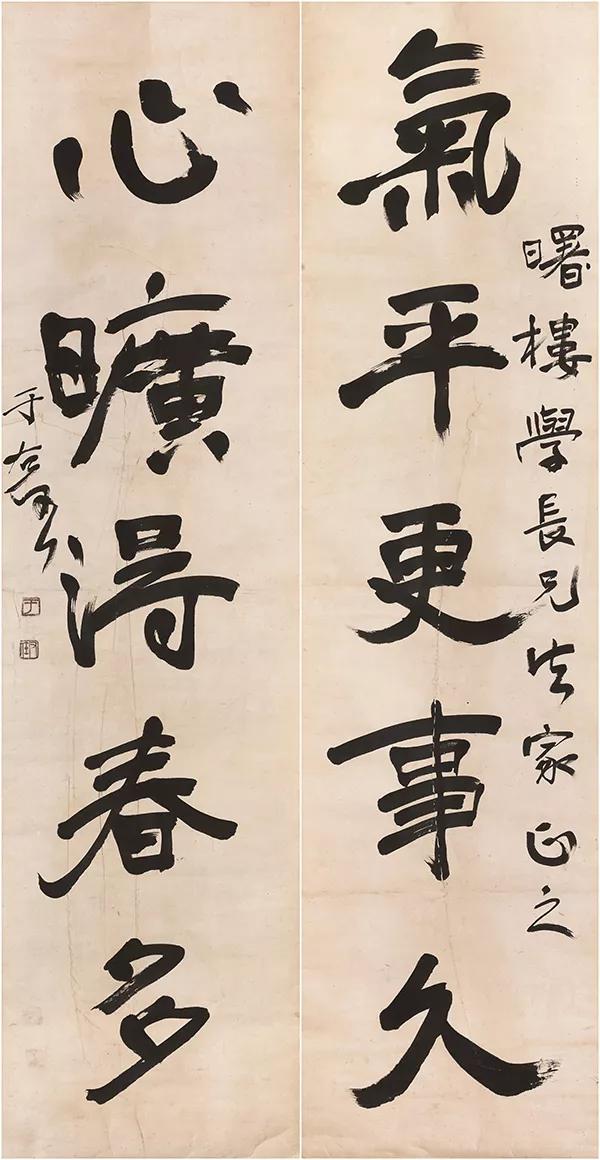 曙樓學長兄法家正之
氣平更事久
心曠得春多
于右任